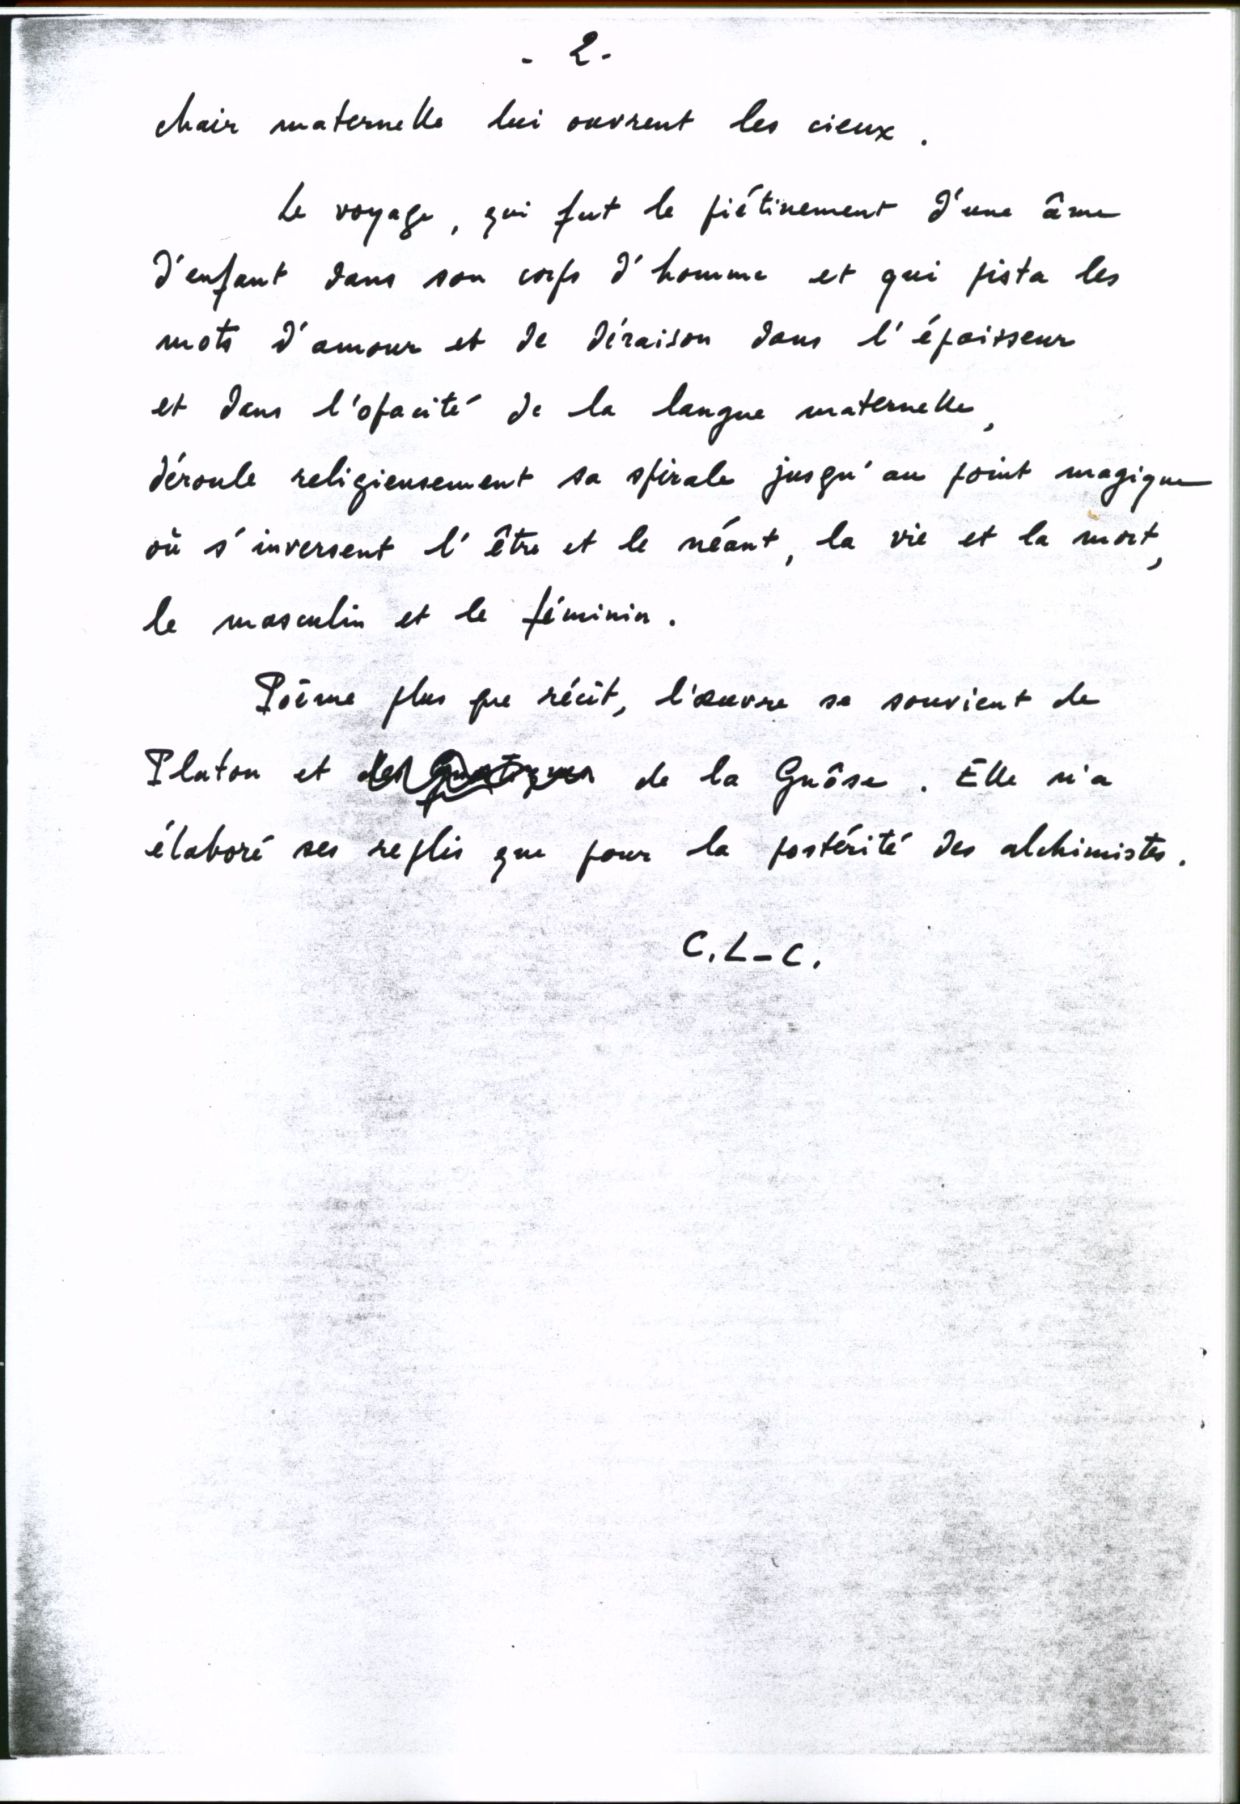 - 2 -
chair maternelle lui ouvrent les cieux.
Le voyage, qui fut le piétinement d'une âme
d'enfant dans son corps d'homme et qui pista les
mots d'amour et de déraison dans l'épaisseur
et dans l'opacité de la langue maternelle,
déroule religieusement sa spirale jusqu'au point magique
où s'inversent l'être et le néant, la vie et la mort,
le masculin et le féminin.
Poème plus que récit, l'œuvre se souvient de
Platon et de la Gnôse. Elle n'a
élaboré ses replis que pour la postérité des alchimistes.
C.L-C.